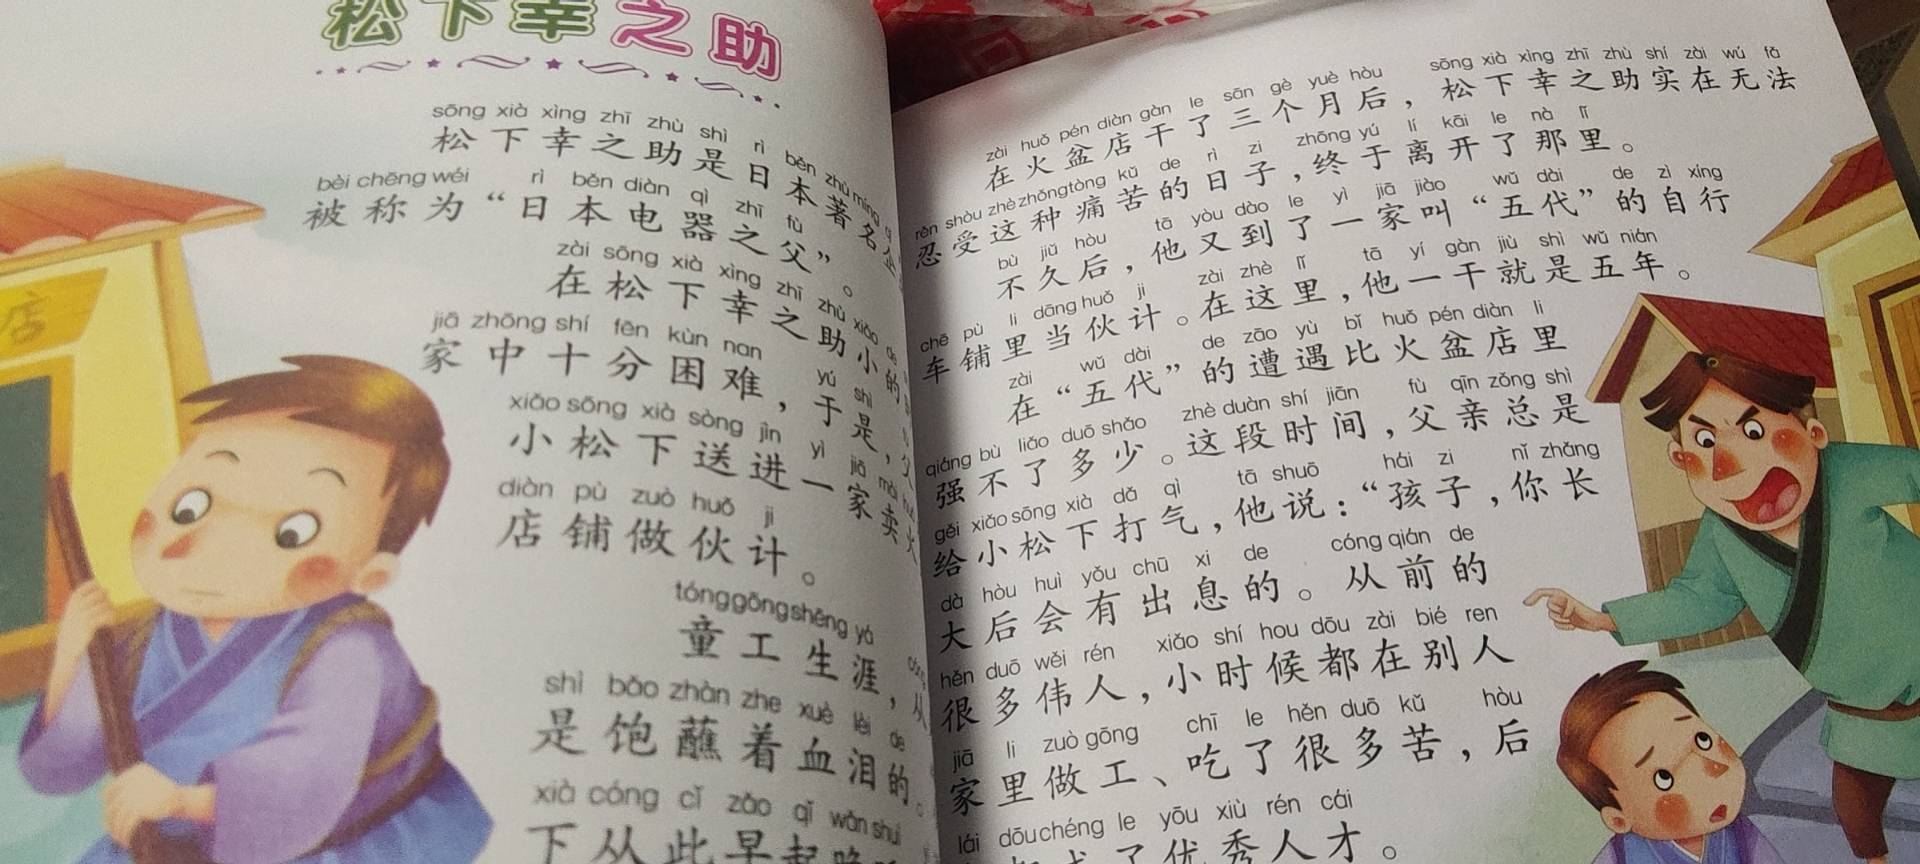 松下幸之助
sōng xià xìng zhī zhù shì rì běn zhù míng
松下幸之助是日本著名企
bèi chēng wéi rì běn diàn qì zhī fù
被称为“日本电器之父”。
zài sōng xià xìng zhī zhù xiǎo de
在松下幸之助小的
jiā zhōng shí fēn kùn nan yú shì
家中十分困难，于是，父
xiǎo sōng xià sòng jìn yì jiā mài huǒ
小松下送进一家卖火
diàn pù zuò huǒ ji
店铺做伙计。
tóng gōng shēng yá cóng
童工生涯，从
shì bǎo zhàn zhe xuè lèi de
是饱蘸着血泪的。
xià cóng cǐ zǎo qǐ wǎn shuì
下从此早起晚
店
zài huǒ pén diàn gàn le sān gè yuè hòu sōng xià xìng zhī zhù shí zài wú fǎ
在火盆店干了三个月后，松下幸之助实在无法
rěn shòu zhè zhǒng tòng kǔ de rì zi zhōng yú lí kāi le nà lǐ
忍受这种痛苦的日子，终于离开了那里。
bù jiǔ hòu tā yòu dào le yì jiā jiào wǔ dài de zì xíng
不久后，他又到了一家叫“五代”的自行
chē pù li dāng huǒ ji zài zhè lǐ tā yí gàn jiù shì wǔ nián
车铺里当伙计。在这里，他一干就是五年。
zài wǔ dài de zāo yù bǐ huǒ pén diàn li
在“五代”的遭遇比火盆店里
qiáng bù liǎo duō shǎo zhè duàn shí jiān fù qīn zǒng shì
强不了多少。这段时间，父亲总是
gěi xiǎo sōng xià dǎ qì tā shuō hái zi nǐ zhǎng
给小松下打气，他说：“孩子，你长
dà hòu huì yǒu chū xi de cóng qián de
大后会有出息的。从前的
hěn duō wěi rén xiǎo shí hou dōu zài bié ren
很多伟人，小时候都在别人
jiā li zuò gōng chī le hěn duō kǔ hòu
家里做工、吃了很多苦，后
lái dōu chéng le yōu xiù rén cái
都成了优秀人才。